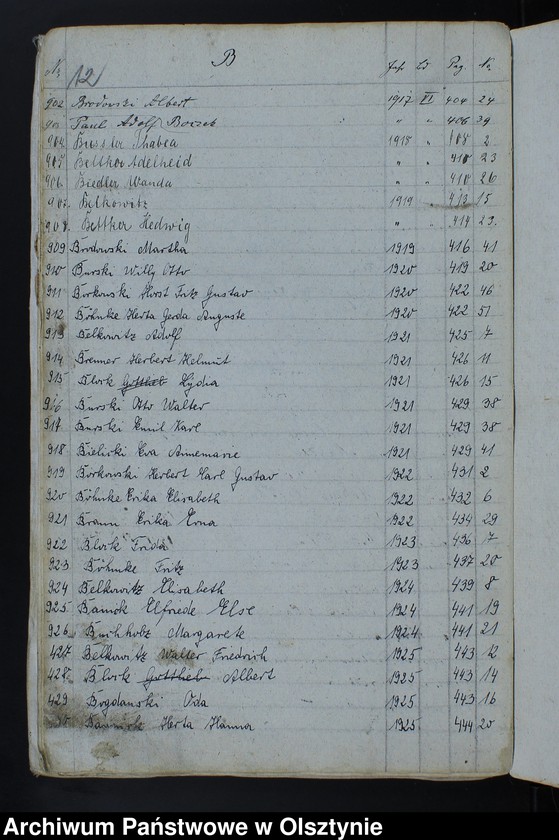 12 B
№ Jahr Bd Pag №
902 Brodowski Albert 1917 VI 404 24
Paul Adolf Boczek " " 406 39
904 Biessler 1918 " 108 2
905 Bettker Adelheid " " 410 23
906 Biedler Wanda " " 410 26
907 Belkowitz 1919 " 412 15
908 Bettker Hedwig " " 414 23
909 Brodowski Martha 1919 416 41
910 Burski Willy Otto 1920 419 20
911 Borkowski Horst Fritz Gustav 1920 422 46
912 Böhnke Herta Gerda Auguste 1920 422 51
913 Belkowitz Adolf 1921 425 7
914 Brenner Herbert Helmut 1921 426 11
915 Block Gottlieb Lydia 1921 426 15
916 Burski Otto Walter 1921 429 38
917 Burski Emil Karl 1921 429 38
918 Bielicki Eva Annemarie 1921 429 41
919 Borkowski Herbert Karl Gustav 1922 431 2
920 Böhnke Erika Elisabeth 1922 432 6
921 Braun Erika Erna 1922 434 29
922 Block Frida 1923 436 7
923 Böhnke Fritz 1923 437 20
924 Belkowitz Elisabeth 1924 439 8
925 Elfriede Else 1924 441 19
926 Buchholz Margarete 1924 441 21
427 Belkowitz Walter Friedrich 1925 443 12
428 Block Gottlieb Albert 1925 443 14
429 Bogdanski Oda 1925 443 16
Herta Hanna 1925 444 20
Archiwum Państwowe w Olsztynie